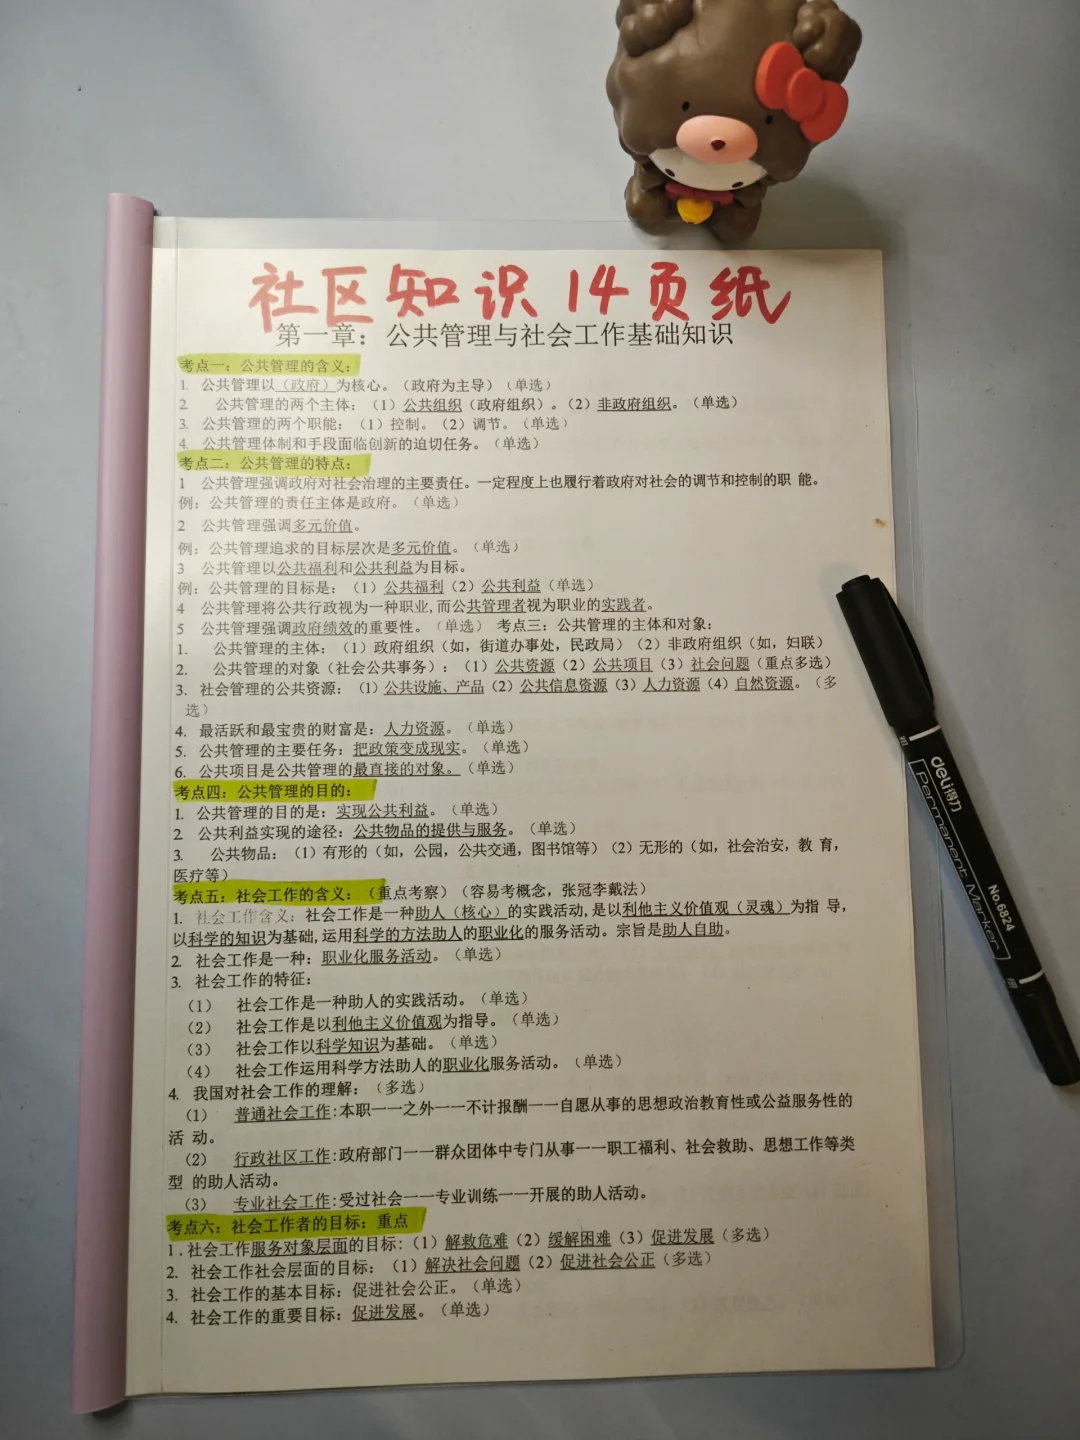 社区知识14页纸
第一章：公共管理与社会工作基础知识
考点一：公共管理的含义：
1. 公共管理以（政府）为核心。（政府为主导）（单选）
2. 公共管理的两个主体：（1）公共组织（政府组织）。（2）非政府组织。（单选）
3. 公共管理的两个职能：（1）控制。（2）调节。（单选）
4. 公共管理体制和手段面临创新的迫切任务。（单选）
考点二：公共管理的特点：
1 公共管理强调政府对社会治理的主要责任。一定程度上也履行着政府对社会的调节和控制的职 能。
例：公共管理的责任主体是政府。（单选）
2 公共管理强调多元价值。
例：公共管理追求的目标层次是多元价值。（单选）
3 公共管理以公共福利和公共利益为目标。
例：公共管理的目标是：（1）公共福利（2）公共利益（单选）
4 公共管理将公共行政视为一种职业,而公共管理者视为职业的实践者。
5 公共管理强调政府绩效的重要性。（单选） 考点三：公共管理的主体和对象：
1. 公共管理的主体：（1）政府组织（如，街道办事处，民政局）（2）非政府组织（如，妇联）
2. 公共管理的对象（社会公共事务）：（1）公共资源（2）公共项目（3）社会问题（重点多选）
3. 社会管理的公共资源：（1）公共设施、产品（2）公共信息资源（3）人力资源（4）自然资源。（多
选）
4. 最活跃和最宝贵的财富是：人力资源。（单选）
5. 公共管理的主要任务：把政策变成现实。（单选）
6. 公共项目是公共管理的最直接的对象。（单选）
考点四：公共管理的目的：
1. 公共管理的目的是：实现公共利益。（单选）
2. 公共利益实现的途径：公共物品的提供与服务。（单选）
3. 公共物品：（1）有形的（如，公园，公共交通，图书馆等）（2）无形的（如，社会治安，教 育，
医疗等）
考点五：社会工作的含义：（重点考察）（容易考概念，张冠李戴法）
1. 社会工作含义：社会工作是一种助人（核心）的实践活动,是以利他主义价值观（灵魂）为指 导，
以科学的知识为基础,运用科学的方法助人的职业化的服务活动。宗旨是助人自助。
2. 社会工作是一种：职业化服务活动。（单选）
3. 社会工作的特征：
（1） 社会工作是一种助人的实践活动。（单选）
（2） 社会工作是以利他主义价值观为指导。（单选）
（3） 社会工作以科学知识为基础。（单选）
（4） 社会工作运用科学方法助人的职业化服务活动。（单选）
4. 我国对社会工作的理解：（多选）
（1） 普通社会工作:本职一一之外一一不计报酬一一自愿从事的思想政治教育性或公益服务性的
活 动。
（2） 行政社区工作:政府部门一一群众团体中专门从事一一职工福利、社会救助、思想工作等类
型 的助人活动。
（3） 专业社会工作:受过社会一一专业训练一一开展的助人活动。
考点六：社会工作者的目标：重点
1.社会工作服务对象层面的目标:（1）解救危难（2）缓解困难（3）促进发展（多选）
2. 社会工作社会层面的目标：（1）解决社会问题（2）促进社会公正（多选）
3. 社会工作的基本目标：促进社会公正。（单选）
4. 社会工作的重要目标：促进发展。（单选）
deli得力
Permanent Marker
No.6824
细